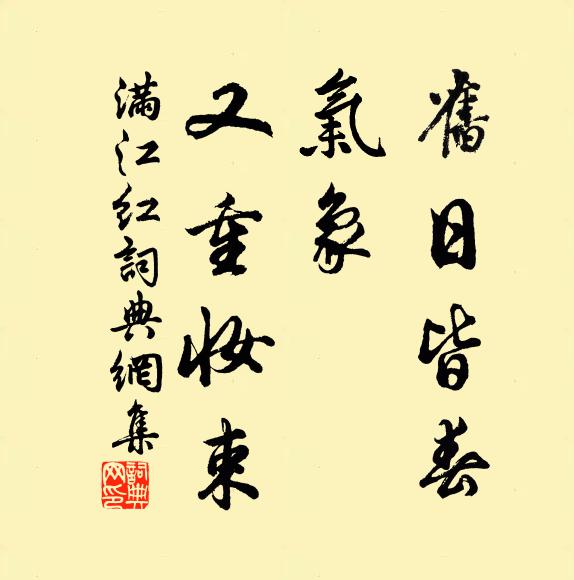 舊日皆春
氣象
又重妝束
滿江紅詞典網集
詞典网印